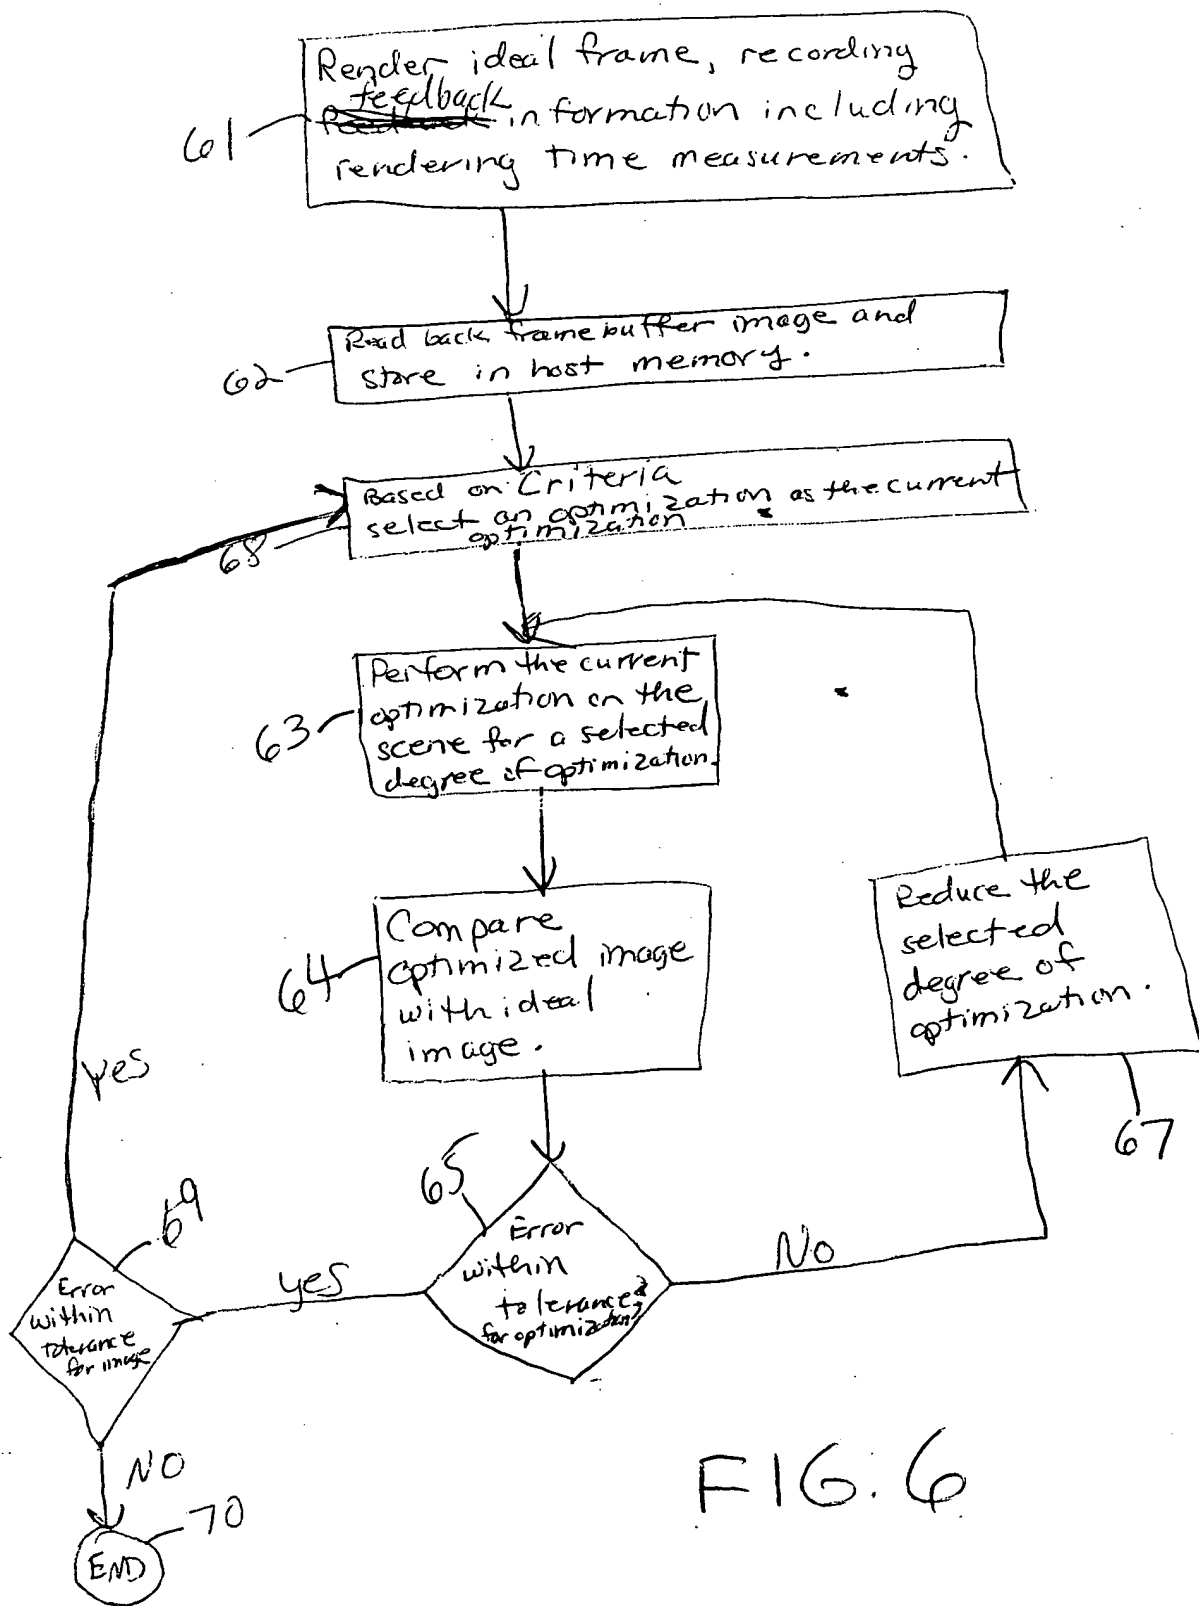 Render ideal frame, recording
feedback
information including
rendering time measurements.
61
Read back frame buffer image and
store in host memory.
62
Based on Criteria
select an optimization as the current
optimization
68
Perform the current
optimization on the
scene for a selected
degree of optimization.
63
Compare
optimized image
with ideal
image.
64
Reduce the
selected
degree of
optimization.
67
65
Error
within
tolerance
for optimization?
No
yes
69
Error
within
tolerance
for image
yes
NO
70
END
FIG. 6